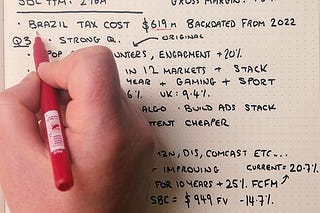 SBC TTM: 2
GROSS MARGIN:
• BRAZIL TAX COST $619M BACKDATED FROM 2022
Q3: • STRONG Q. ORIGINAL
POP UNTERS, ENGAGMENT +20%
IN 12 MARKETS + STACK
YEAR + GAMING + SPORT
6% UK: 9.4%
ALGO • BUILD ADS STACK
TENT CHEAPER
DIS, COMCAST ETC...
IMPROVING CURRENT = 20.7%
FOR 10 YEARS + 25% FCFM
SBC = $949 FV -14.7%